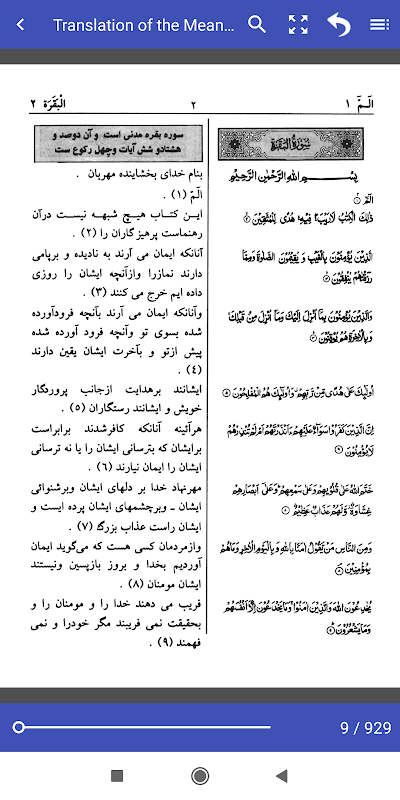 Translation of the Mean...
الٓـمّٓ ١
٢
الْبَقَرَة ٢
سُوْرَةُ الْبَقَرَةِ
بِسْمِ اللهِ الرَّحْمٰنِ الرَّحِيْمِ
الٓمّٓ
ذٰلِكَ الْكِتٰبُ لَا رَيْبَ ۛ فِيْهِ ۛ هُدًى لِّلْمُتَّقِيْنَ
الَّذِيْنَ يُؤْمِنُوْنَ بِالْغَيْبِ وَ يُقِيْمُوْنَ الصَّلٰوةَ وَمِمَّا
رَزَقْنٰهُمْ يُنْفِقُوْنَ
وَالَّذِيْنَ يُؤْمِنُوْنَ بِمَآ اُنْزِلَ اِلَيْكَ وَمَآ اُنْزِلَ مِنْ قَبْلِكَ
وَبِالْاٰخِرَةِ هُمْ يُوْقِنُوْنَ
اُولٰٓئِكَ عَلٰى هُدًى مِّنْ رَّبِّهِمْ وَاُولٰٓئِكَ هُمُ الْمُفْلِحُوْنَ
اِنَّ الَّذِيْنَ كَفَرُوْا سَوَآءٌ عَلَيْهِمْ ءَاَنْذَرْتَهُمْ اَمْ لَمْ تُنْذِرْهُمْ
لَا يُؤْمِنُوْنَ
خَتَمَ اللهُ عَلٰى قُلُوْبِهِمْ وَعَلٰى سَمْعِهِمْ وَعَلٰٓى اَبْصَارِهِمْ
غِشَاوَةٌ وَّلَهُمْ عَذَابٌ عَظِيْمٌ
وَمِنَ النَّاسِ مَنْ يَّقُوْلُ اٰمَنَّا بِاللهِ وَبِالْيَوْمِ الْاٰخِرِ وَمَا هُمْ
بِمُؤْمِنِيْنَ
يُخٰدِعُوْنَ اللهَ وَالَّذِيْنَ اٰمَنُوْا وَمَا يَخْدَعُوْنَ اِلَّآ اَنْفُسَهُمْ
وَمَا يَشْعُرُوْنَ
سوره بقره مدنی است و آن دوصد و
هشتادو شش آیات وچهل رکوع ست
بنام خدای بخشاینده مهربان .
الٓمّٓ (۱) .
ایـن کتـاب هیـچ شبهـه نیسـت درآن
رهنماست پرهیزگاران را (۲) .
آنانکه ایمان می آرند به نادیده و برپامی
دارند نمازرا وازآنچه ایشان را روزی
داده ایم خرج می کنند (۳) .
وآنانکه ایمان می آرند بآنچه فرودآورده
شده بسوی تو وآنچه فرود آورده شده
پیش ازتو و بآخرت ایشان یقین دارند
(٤) .
ایشانند برهدایت ازجانب پروردگار
خویش و ایشانند رستگاران (٥) .
هرآئینه آنانکه کافرشدند برابراست
برایشان که بترسانی ایشان را یا نه ترسانی
ایشان را ایمان نیارند (٦) .
مهرنهاد خدا بر دلهای ایشان وبرشنوائی
ایشان ـ وبرچشمهای ایشان پرده ایست و
ایشان راست عذاب بزرگ (۷) .
وازمردمان کسی هست که می‌گوید ایمان
آوردیم بخدا و بروز بازپسین ونیستند
ایشان مومنان (۸) .
فریب می دهند خدا را و مومنان را و
بحقیقت نمی فریبند مگر خودرا و نمی
فهمند (۹) .
9 / 929